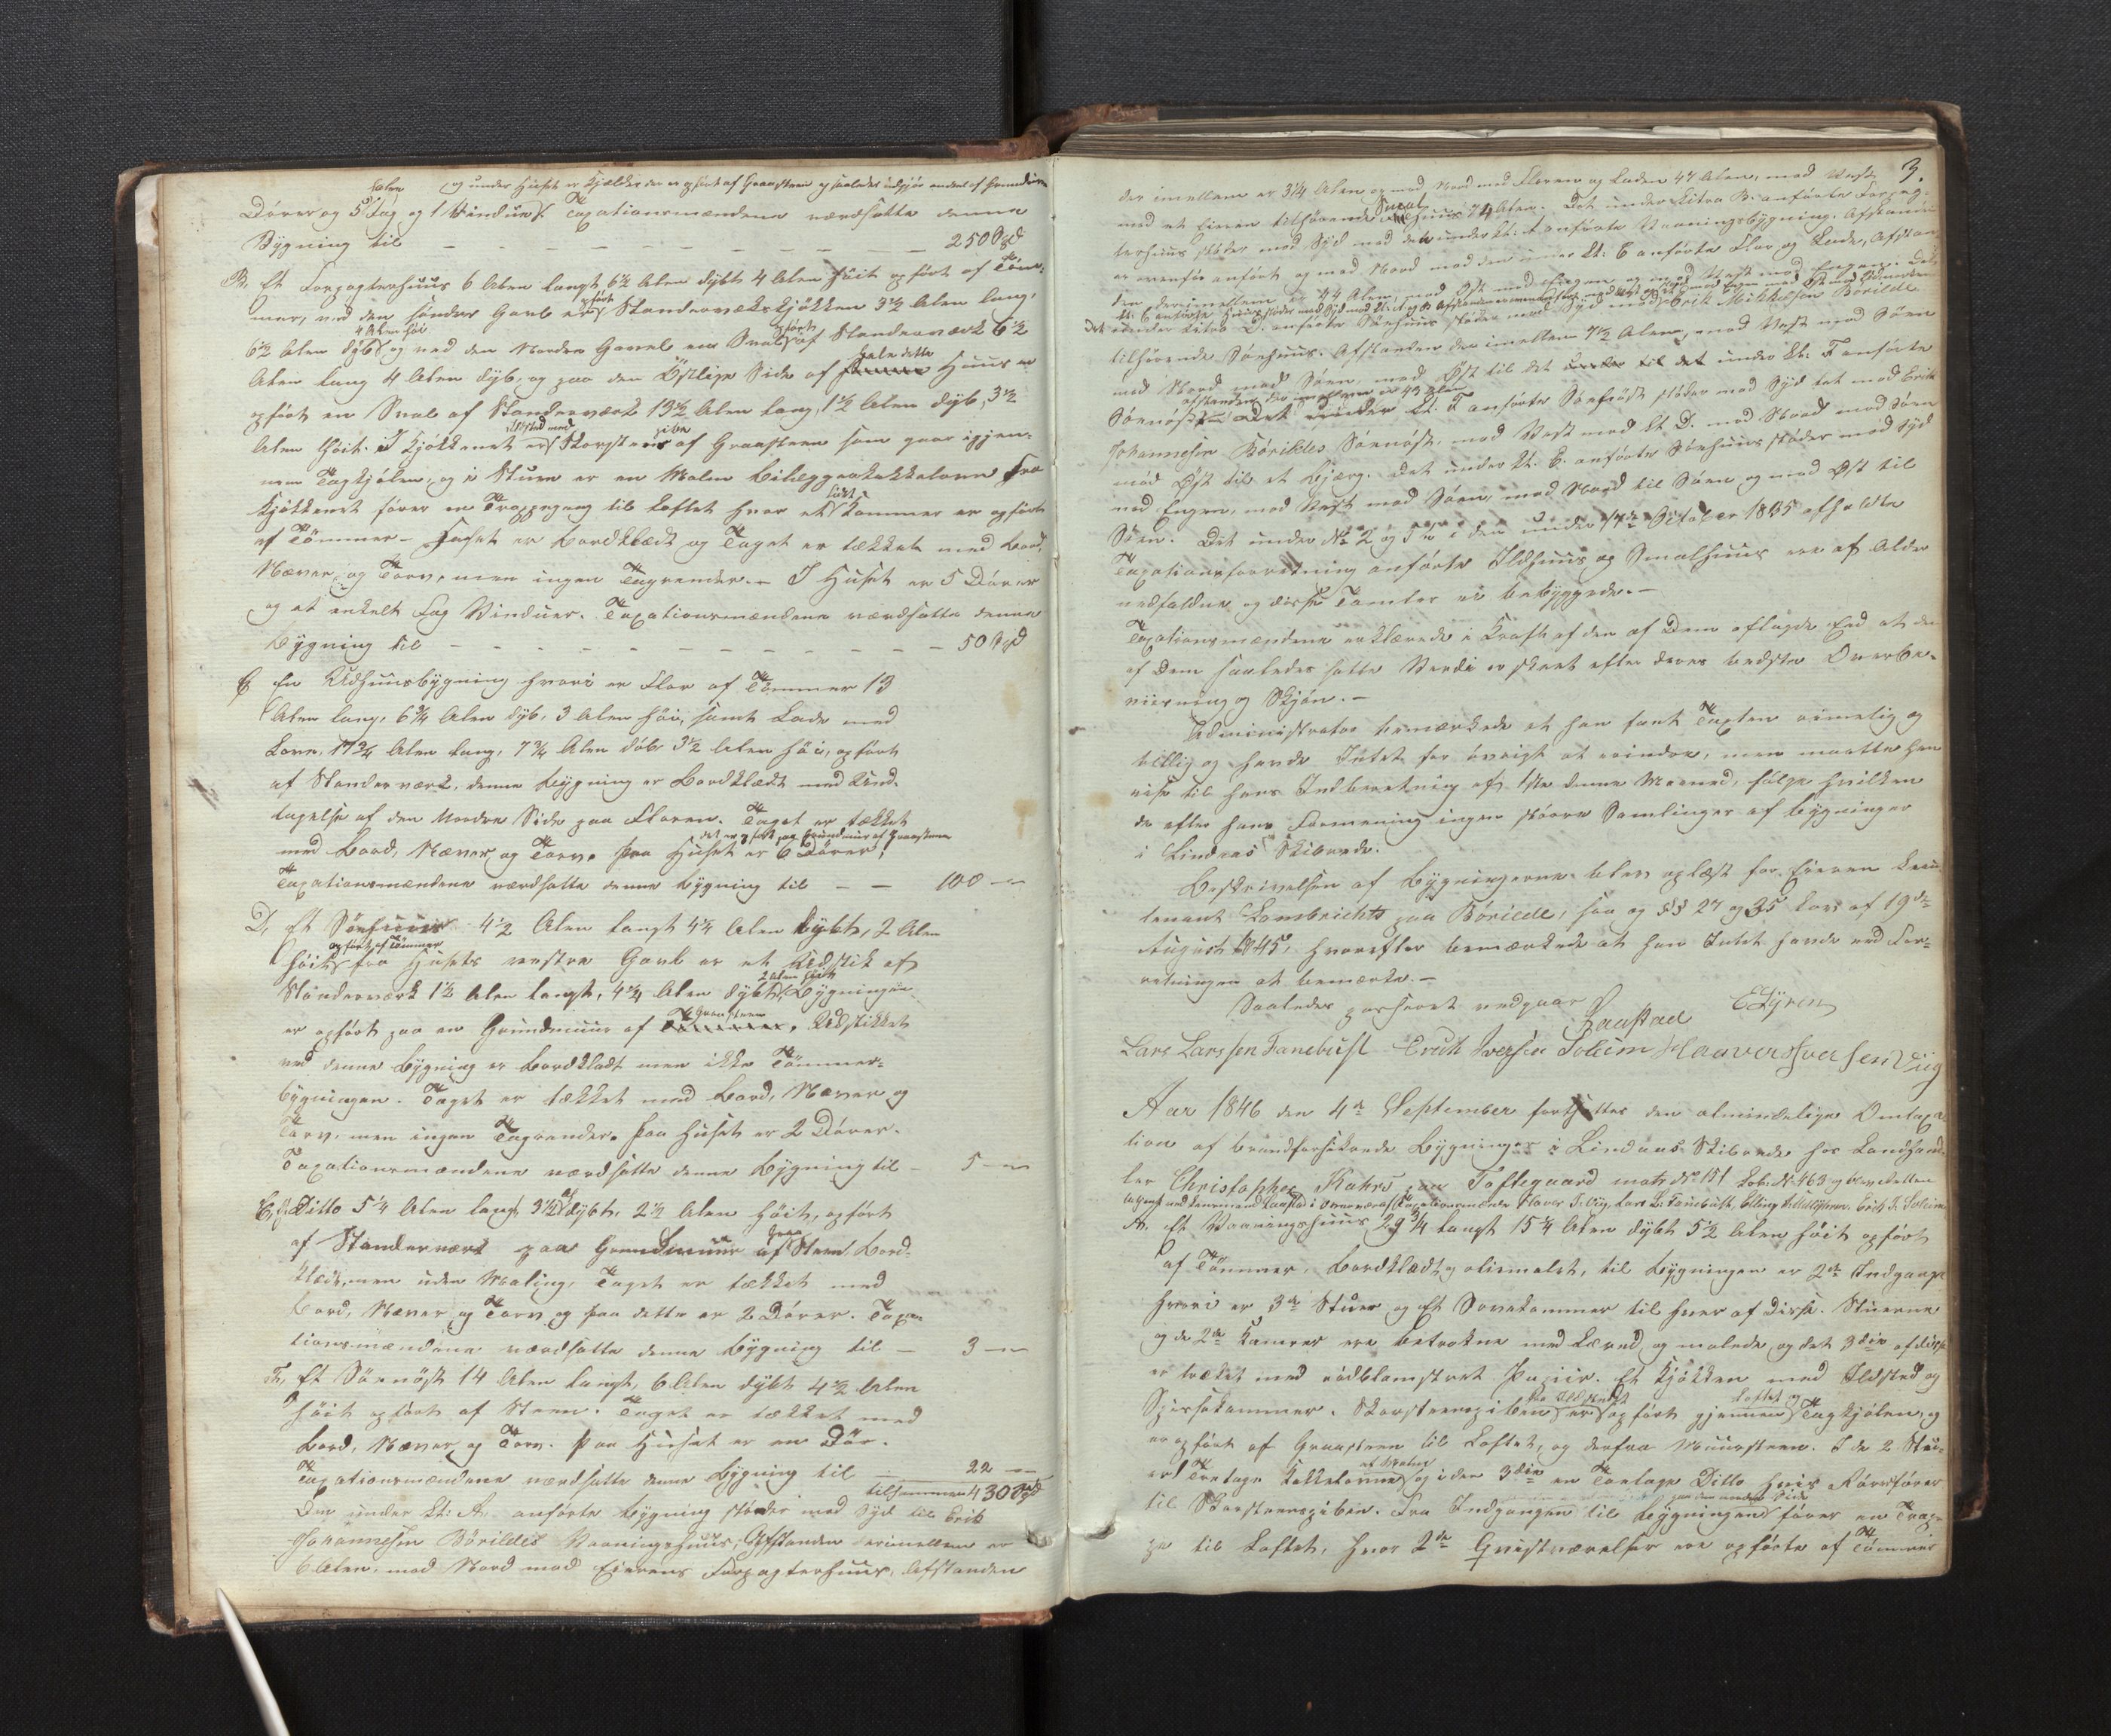 halve og under Huset er Kjelder der er opført af Graasteen og saaledes udgjør endeel af Grundmuren
Dører og 5 Fag og 1 Vindue. Taxationsmændene værdsatte denne
Bygning til — — — — — — — 250 Spd
B, Et Forpagterhuus 6 Alen langt, 6½ Alen dybt 4 Alen høit opført af Tøm-
mer, ved den søndre Gavl er opført Standerværkskjøkken 3½ Alen lang,
4 Alen høi
6½ Alen dyb og ved den Nordre Gavel en Sval opført af Standerværk 6½
Alen lang 4 Alen dyb, og paa den Østlige Side af hele dette Huus er
opført en Sval af Standerværk 13½ Alen lang, 1½ Alen dyb, 3½
Alen høit. I Kjøkkenet er Ildsted med Skorsteenspibe af Graasteen som gaar igjen-
nem Tagkjølen, og i Stuen er en Malm Bilæggerkakkelovn Fra
Kjøkkenet fører en Trappegang til Loftet hvor et lidet Kammer er opført
af Tømmer — Huset er bordklædt og Taget er tækket med Bord,
Næver og Torv, men ingen Tagrender. — I Huset er 5 Dører
og et enkelt Fag Vinduer. Taxationsmændene værdsatte denne
Bygning til — — — — — — — 50 Spd
C En Udhuusbygning hvori er Flor af Tømmer 13
Alen lang, 6¾ Alen dyb, 3 Alen høi, samt Lade med
Love, 17¾ Alen lang, 7¾ Alen dyb 3½ Alen høi, opført
af Standerværk, denne Bygning er Bordklædt med Und-
tagelse af den Nordre Side paa Floren. Taget er tækket
det er opført paa Grundmuur af Graasteen
med Bord, Næver og Torv. Paa Huset er 6 Dører,
Taxationsmændene værdsatte denne Bygning til — — 100 —
D, Et Søehuus 4½ Alen langt 4¼ Alen dybt, 2 Alen
høit opført af Tømmer fra Husets vestre Gavl er et Udstik af
Standerværk 1½ Alen langt, 4¼ Alen dybt 2 Alen høit Bygningen
er opført paa en Grundmuur af Graasteen. Udstikket
ved denne Bygning er Bordklædt men ikke Tømmer-
bygningen. Taget er tækket med Bord, Næver og
Torv, men ingen Tagrender. Paa Huset er 2 Dører.
Taxationsmændene værdsatte denne Bygning til — 5 —
E, Et Ditto 5¼ Alen langt 3½ Al dybt, 2½ Alen høit, opført
af Standerværk paa Grundmuur af Graa Steen. Bord-
klædt, men uden Maling, Taget er tækket med
Bord, Næver og Torv og paa dette er 2 Dører. Taxa-
tionsmændene værdsatte denne Bygning til — 3 —
F, Et Søenøst 14 Alen langt, 6 Alen dybt 4½ Alen
høit opført af Steen. Taget er tækket med
Bord, Næver og Torv. Paa Huset er en Dør.
Taxationsmændene værdsatte denne Bygning til — 22 —
tilsammen 430 Spd
Den under Lit: A. anførte Bygning støder mod Syd til Erik
Johannesen Børildes Vaaningshuus, Afstanden derimellem er
6 Alen, mod Nord mod Eierens Forpagterhuus, Afstanden
3.
der imellem er 31¼ Alen og mod Nord mod Floren og Laden 47 Alen, mod Vest
mod et Eieren tilhørende huus 74 Alen. Det under Litra B. anførte Forpag-
terhuus støder mod Syd mod det under Lit: A anførte Vaaningsbygning. Afstanden
er ovenfor anført, og mod Nord mod den under Lit: C anførte Flor og Lade, Afstan-
den derimellem er 44 Alen, mod Øst mod Engen og mod Vest mod Engen. Det
under Litra D. anførte Søehuus støder mod Syd mod Erik Mikkelsen Børilde
tilhørende Søehuus. Afstanden der imellem 7½ Alen, mod Vest mod Søen
mod Nord mod Søen, mod Øst til det under Lit: F anførte
Søenøst afstanden der imellem er 43 Alen Det under Lit. F anførte Søenøst støder mod Syd tet mod Erik
Johannesen Børildes Søenøst, mod Vest mod Lit D. mod Nord mod Søen
mod Øst til et Bjerg. Det under Lit. E. anførte Søehuus støder mod Syd
mod Engen, mod Vest mod Søen, mod Nord til Søen og mod Øst til
Søen. Det under No 2 og 5 i den under 17de October 1835 afholdte
Taxationsforretning anførte Ildhuus og Smalhuus ere af Alder
nedfaldne og disse Tomter ei bebyggede. —
Taxationsmændene erklærede i Kraft af den af Dem aflagde Eed at den
af Dem saaledes satte Værdi er skeet efter deres bedste Overbe-
viisning og Skjøn. —
Administrator bemærkede at han fandt Taxten rimelig og
billig og havde Intet for øvrigt at erindre, men maatte hen-
vise til hans Indberetning af 1ste denne Maaned, ifølge hvilken
de efter hans Formening ingen større Samlinger af Bygninger
i Lindaas Skibrede.
Beskrivelsen af Bygningerne blev oplæst for Eieren Lieu-
tenant Lambrechts paa Børilde, saa og §§ 27 og 35 Lov af 19de
August 1845, hvorefter bemærkede at han Intet havde ved For-
retningen at bemærke. —
Saaledes passeret vedgaar
Raustad E Gyren
Lars Larssen Fanebust Erick Iversen Solum Haaver Iversen Viig
Aar 1846 den 4de September fortsattes den almindelige Omtaxa-
tion af brandforsikrede Bygninger i Lindaas Skibrede hos Landhand-
ler Christopher Kahrs paa Toftegaard matr No 151 Løb: No 463 og blev Retten
A. Et Vaaningshuus 29¾ langt 15¼ Alen dybt 5½ Alen høit opført
af Tømmer, Bordklædt og oliemalet, til Bygningen er 2de Indgange
hvori er 3de Stuer og Et Sovekammer til hver af disse. Stuerne
og de 2de Kamre ere betrukne med Lærred og malede og det 3die af disse
er trækket med rødblomstret Papiir. Et Kjøkken med Ildsted og
Spiisekammer. Skorsteenspiben fra Ildstedet er opført gjennem Loftet og Tagkjølen, og
er opført af Graasteen til Loftet, og derfra Muursteen. I de 2 Stu-
er Tre Etages Kakkelovne og i den 3die en Toetages Ditto hvis Rør fører
til Skorsteenspiben. Fra Indgangen til Bygningen paa den nordre Side fører en Trap-
pe til Loftet, hvor 2de Qvistværelser ere opførte af Tømmer